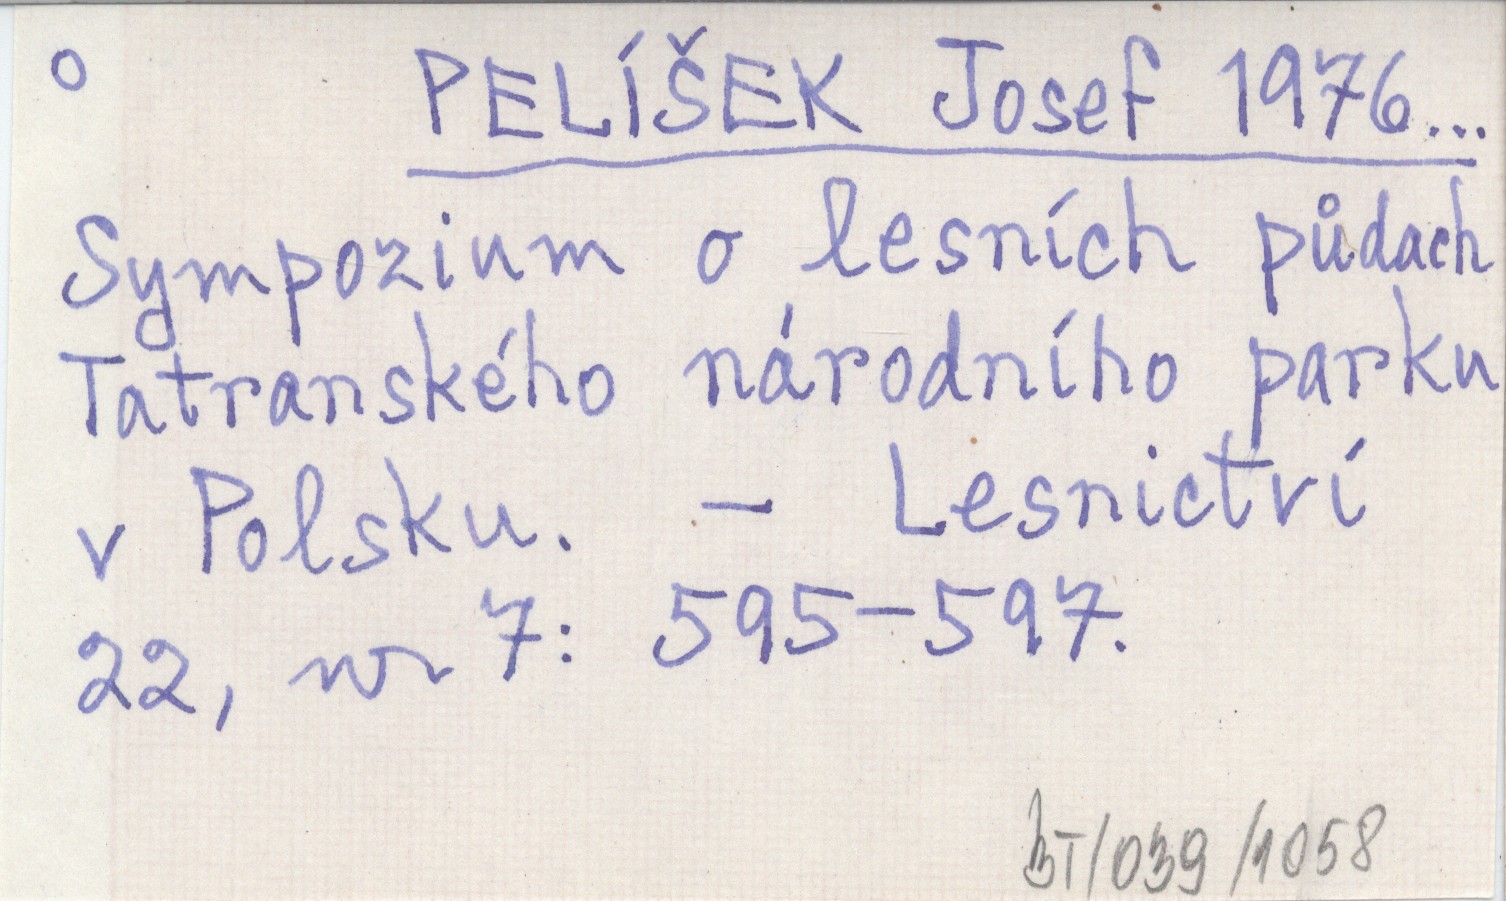 o PELÍŠEK Josef 1976...
Sympozium o lesních půdach
Tatranského národního parku
v Polsku. – Lesnictví
22, nr 7: 595–597.
BT/039/1058